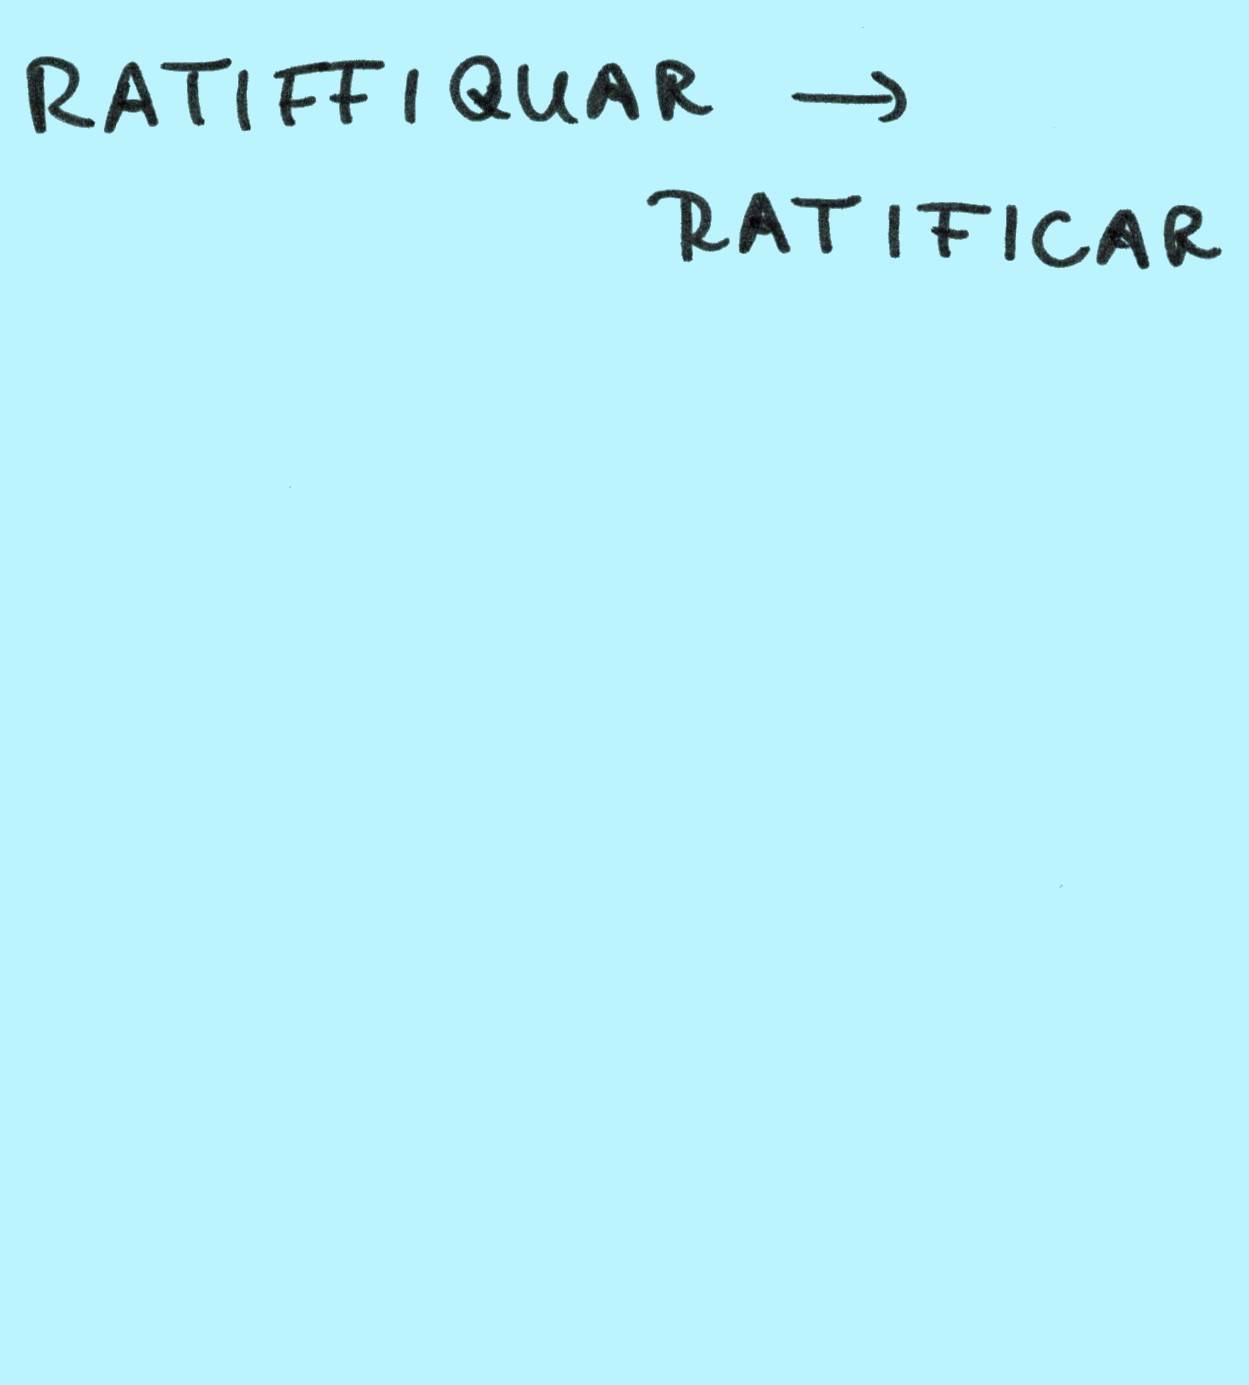 RATIFFIQUAR →
RATIFICAR